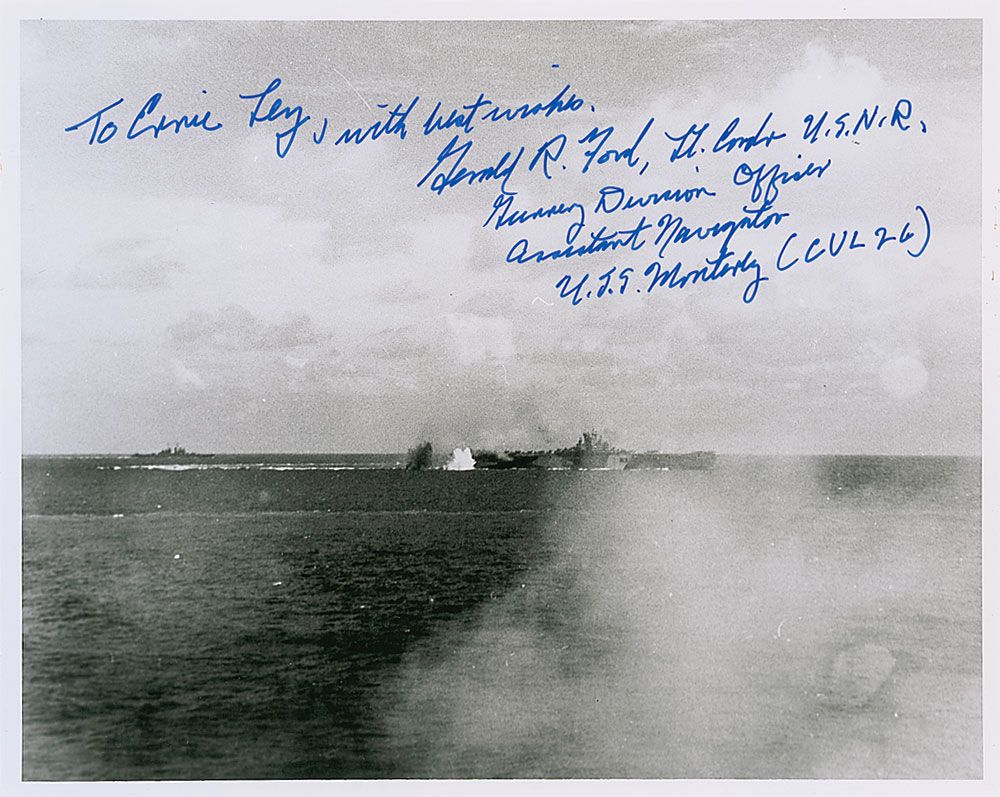 To Ernie Ley, with best wishes.
Gerald R. Ford, Lt. Comdr U.S.N.R.
Gunnery Division Officer
Assistant Navigator
U.S.S. Monterey (CVL 26)